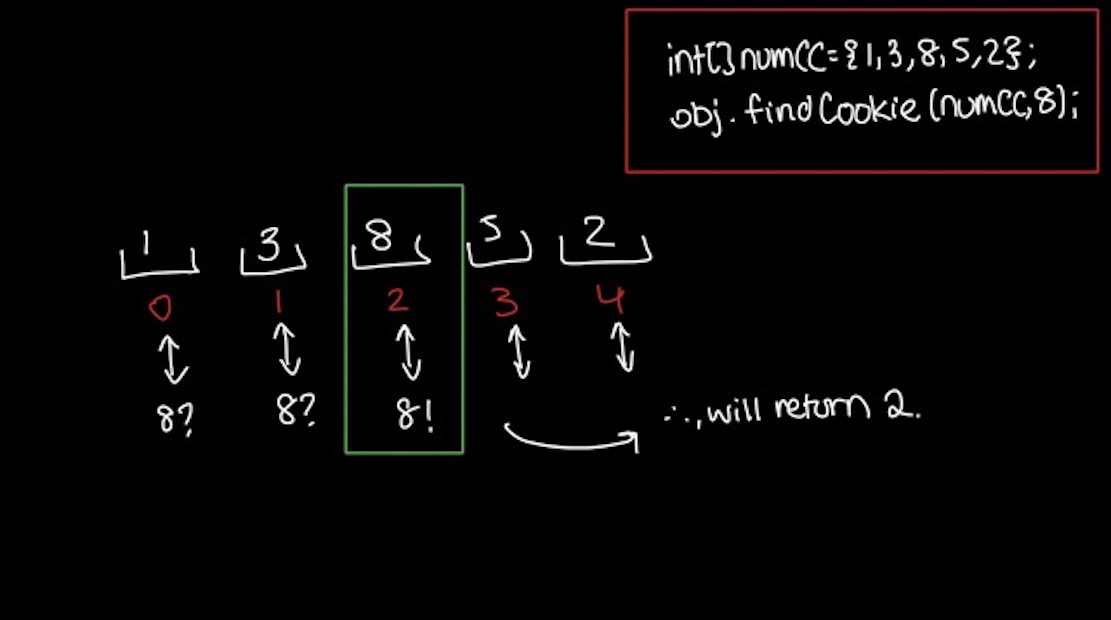 int[] numCC={1,3,8,5,2};
obj.findCookie(numCC,8);
1 3 8 5 2
0 1 2 3 4
8? 8? 8!
∴, will return 2.